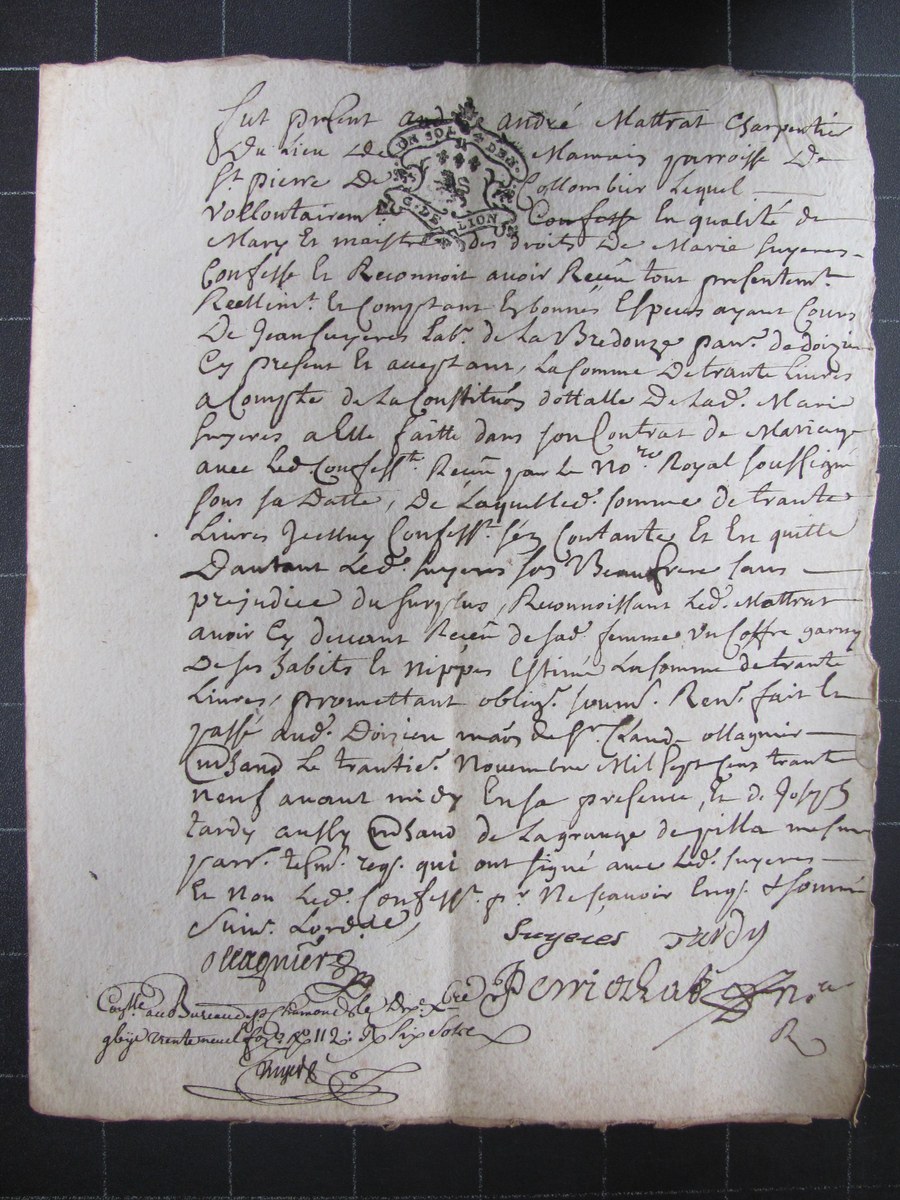 fut present aud andré Mattrat Charpentier
Du Lieu de Mamais parroisse de
St pierre De Collombier Lequel
UN SOL 4 DEN.
G. DE LION
vollontairemt Confesse En qualité de
Mary Et maistre des droits De Marie Suyeres
Confesse Et Reconnoit avoir Receu tout presentemt
Reellemt Et Comptant En bonnes Especes ayant Cours
De Jean Suyeres Labr de La Bredouze parr. de doizieu
Cy present Et acceptant, La somme De trante Livres
a Compte de La Constituon dottalle De Lad. Marie
Suyeres a Elle faitte dans son Contrat de Mariage
avec Led. Confesst. Receu par Le Nore Royal soussigné
sous sa Datte, De Laquelle d. somme de trante
Livres Jcelluy Confesst. s'en Contante Et En quitte
D'autant Led. Suyeres son Beaufrere sans
prejudice du surplus, Reconnoissant Led. Mattrat
avoir Cy devant Receu de sad. femme un Coffre garny
De ses habits Et nippes Estimé La somme de trante
Livres, promettant oblign. soumn. Renn. fait Et
passé aud. Doizieu maon de Sr. Claude ollagnier
Mchand Le trantie. Novembre Mil sept cens trante
neuf avant midy En sa presence, Et d. Joseph
tardy aussy Mchand de La grange de pilla mesme
parr. tesmt. reqs. qui ont signé avec Led. Suyeres
Et Non Led. Confesst. pr Ne sçavoir Enqs. & sommé
Suivt. Lordce,
Suyeres Tardy
ollagnier
Perriochat nore
R
Conlle au Bureau de St chamond le dix Xbre
gbije trente neuf fo 112: R six sols